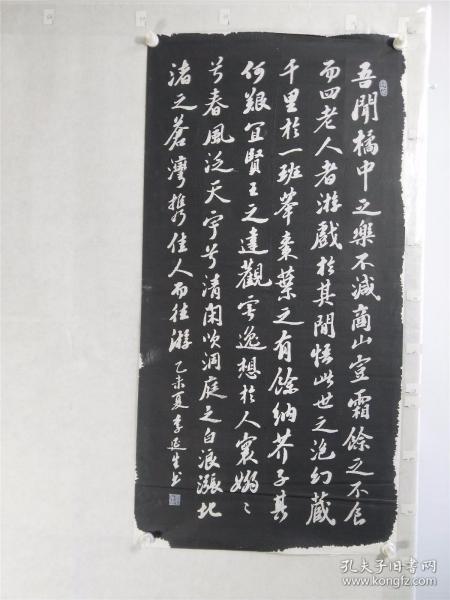 吾聞橘中之樂不減商山豈霜餘之不食
而四老人者游戲於其間悟此世之泡幻藏
千里於一班舉棗葉之有餘納芥子其
何艱宜賢王之達觀寄逸想於人寰嫋〻
兮春風泛天宇兮清閑吹洞庭之白浪漲北
渚之蒼灣攜佳人而往游 乙未夏李延生书
孔夫子旧书网
www.kongfz.com